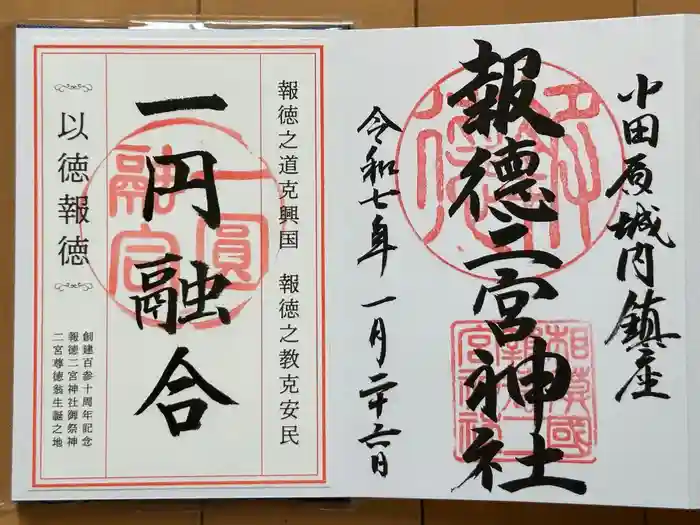 小田原城内鎮座
報徳二宮神社
令和七年 一月二十六日
相模國
報徳二
宮神社
報徳之道克興国 報徳之教克安民
一円融合
一圓
融合
以徳報徳
創建百参十周年記念
報徳二宮神社御祭神
二宮尊徳翁生誕之地